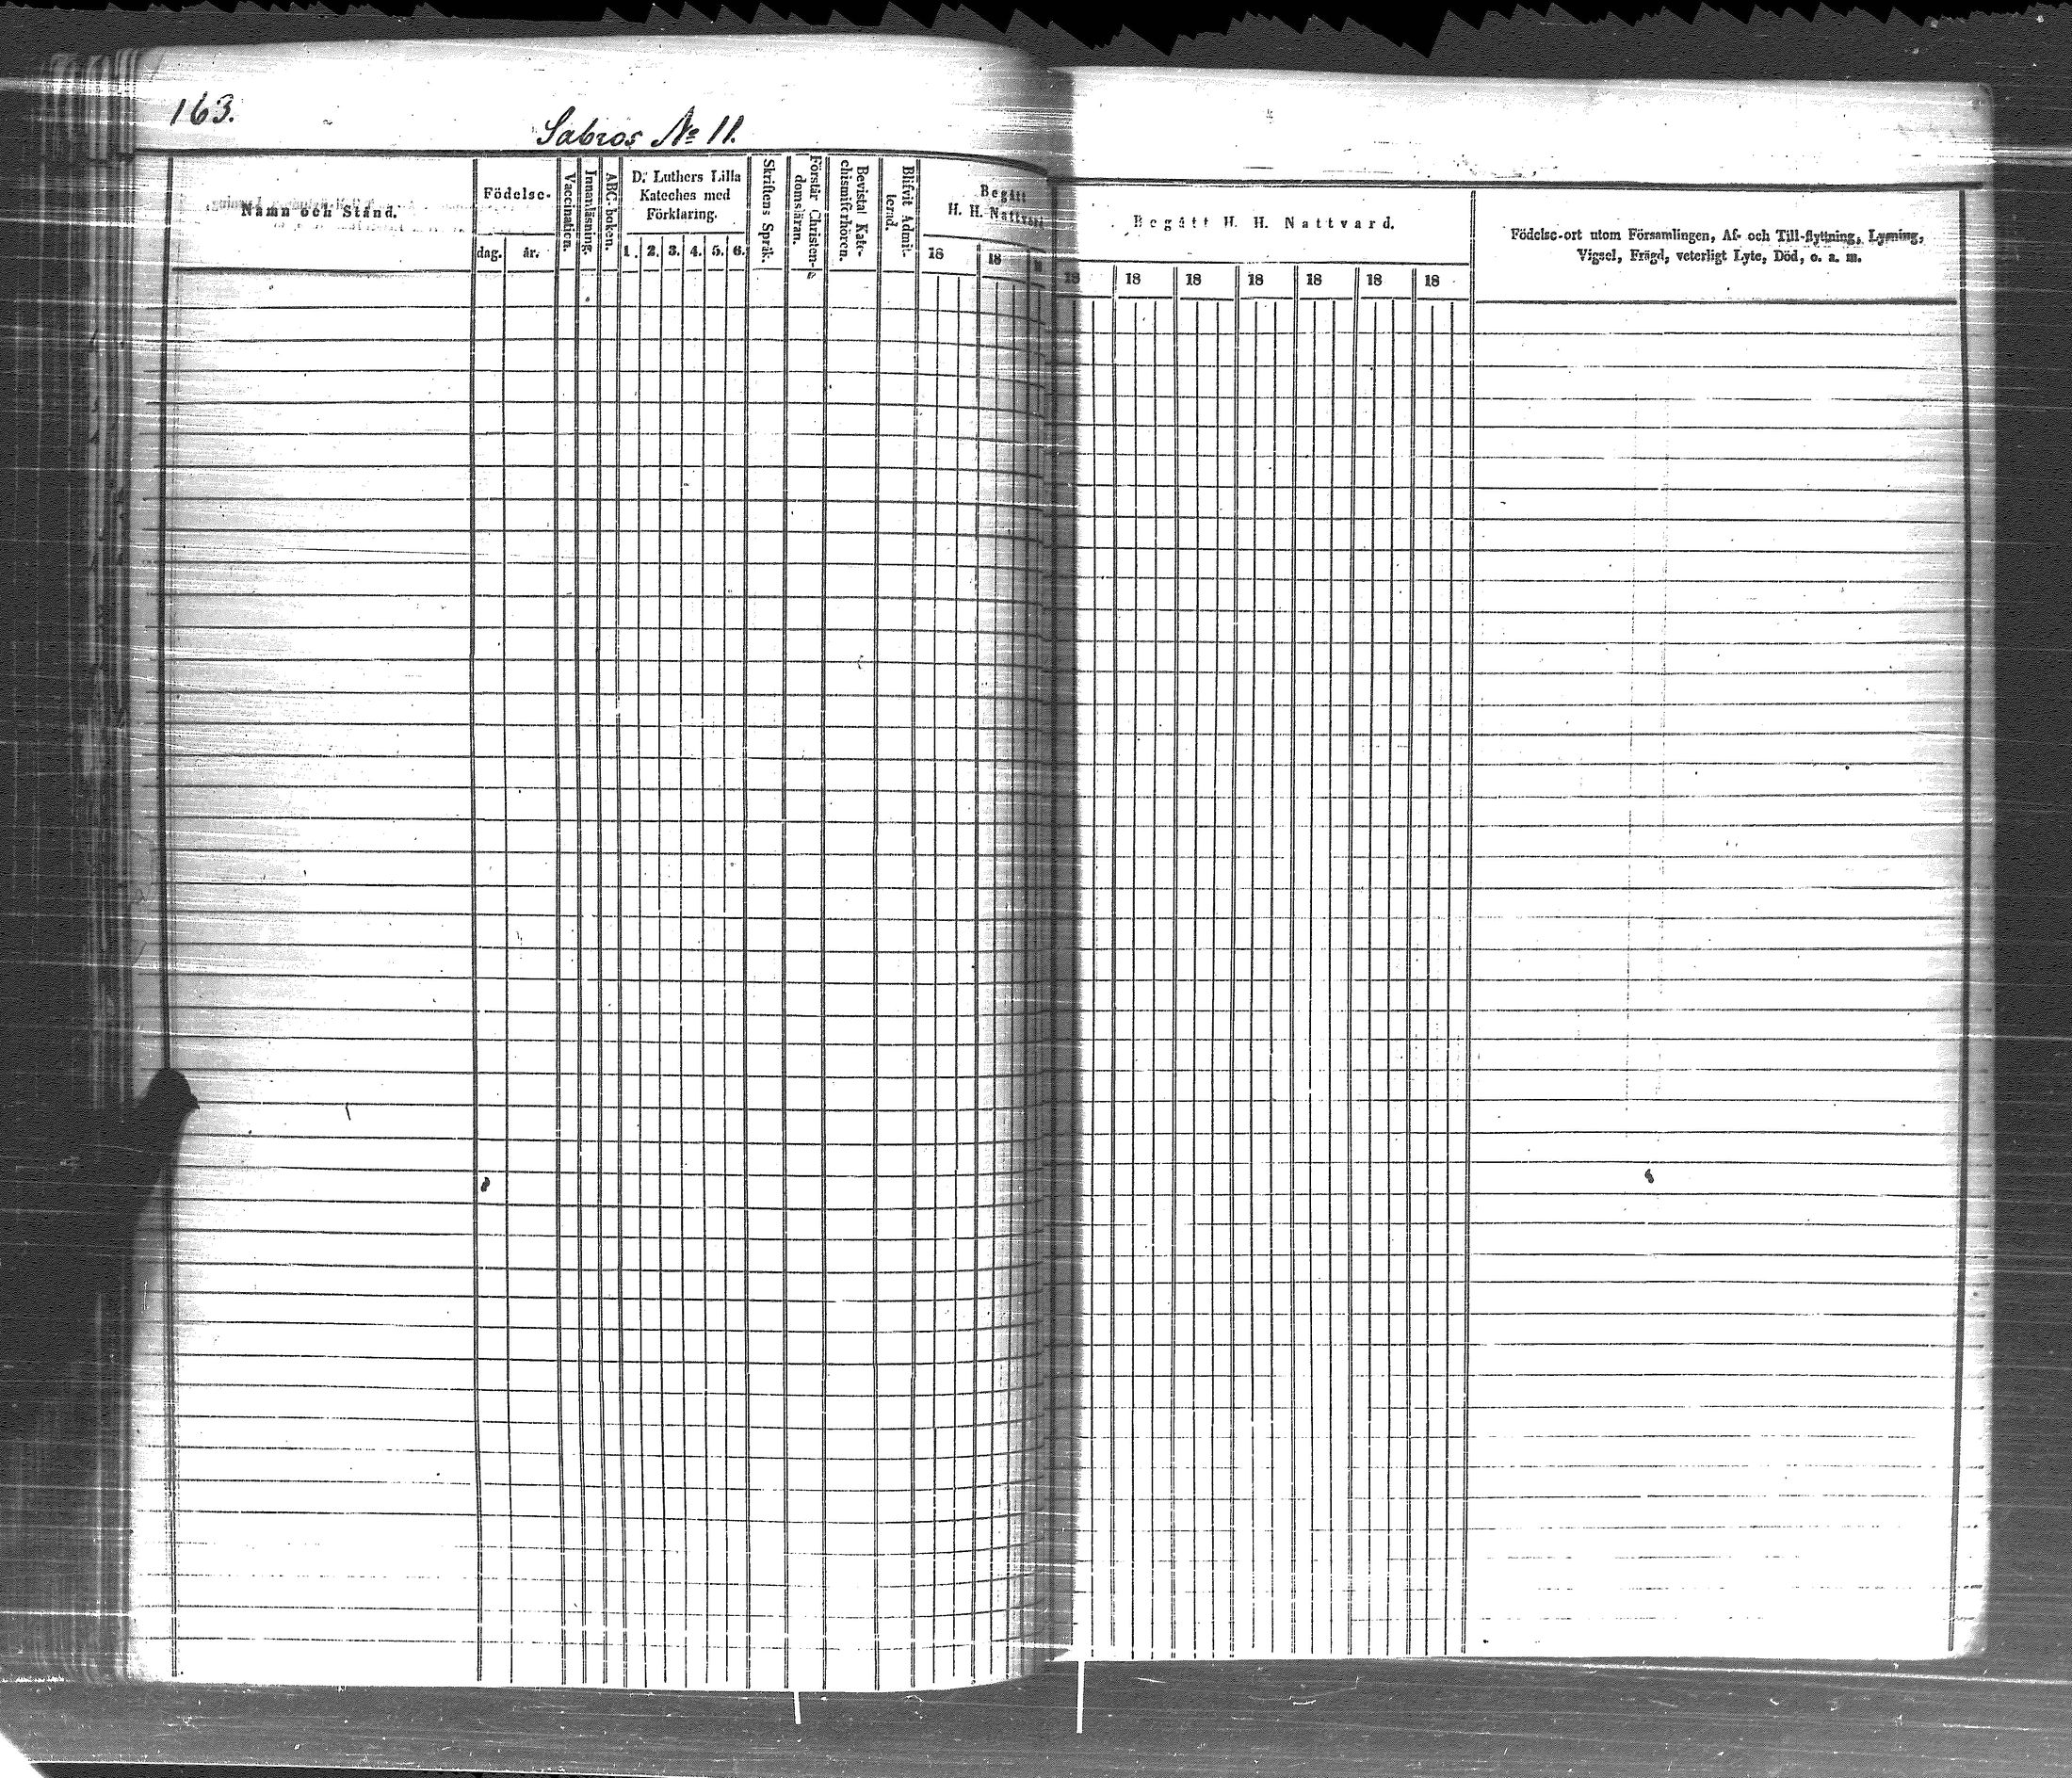 163.
Sabros № 11.
Namn och Stånd.
Födelse-
dag.
år.
Vaccination.
Innanläsning.
ABC-boken.
D:r Luthers Lilla
Kateches med
Förklaring.
1. 2. 3. 4. 5. 6.
Skriftens Språk.
Förstår Christen-
domsläran.
Bevistat Kate-
chismiförhören.
Blifvit Admit-
terad.
Begått
H. H. Nattvard
18 18
Begått H. H. Nattvard.
18 18 18 18 18 18 18
Födelse-ort utom Församlingen, Af- och Till-flyttning, Lysning,
Vigsel, Frägd, veterligt Lyte, Död, o. s. m.